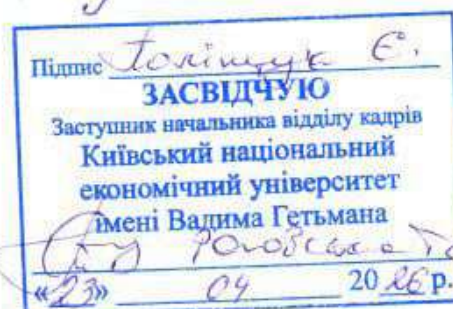 Підпис Поліщук Є.
ЗАСВІДЧУЮ
Заступник начальника відділу кадрів
Київський національний
економічний університет
імені Вадима Гетьмана
«23» 04 2026 р.